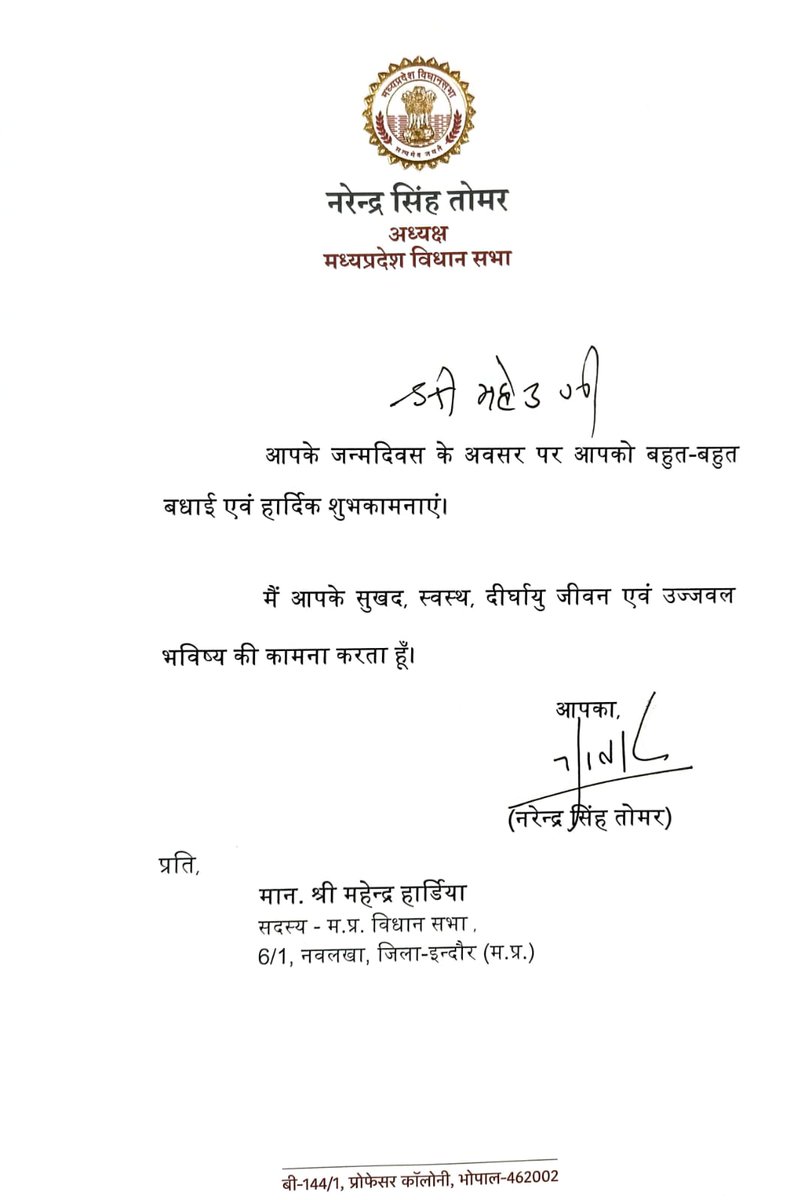 मध्यप्रदेश विधानसभा
सत्यमेव जयते
नरेन्द्र सिंह तोमर
अध्यक्ष
मध्यप्रदेश विधान सभा
श्री महेन्द्र जी
आपके जन्मदिवस के अवसर पर आपको बहुत-बहुत
बधाई एवं हार्दिक शुभकामनाएं।
मैं आपके सुखद, स्वस्थ, दीर्घायु जीवन एवं उज्जवल
भविष्य की कामना करता हूँ।
आपका,
(नरेन्द्र सिंह तोमर)
प्रति,
मान. श्री महेन्द्र हार्डिया
सदस्य - म.प्र. विधान सभा ,
6/1, नवलखा, जिला-इन्दौर (म.प्र.)
बी-144/1, प्रोफेसर कॉलोनी, भोपाल-462002